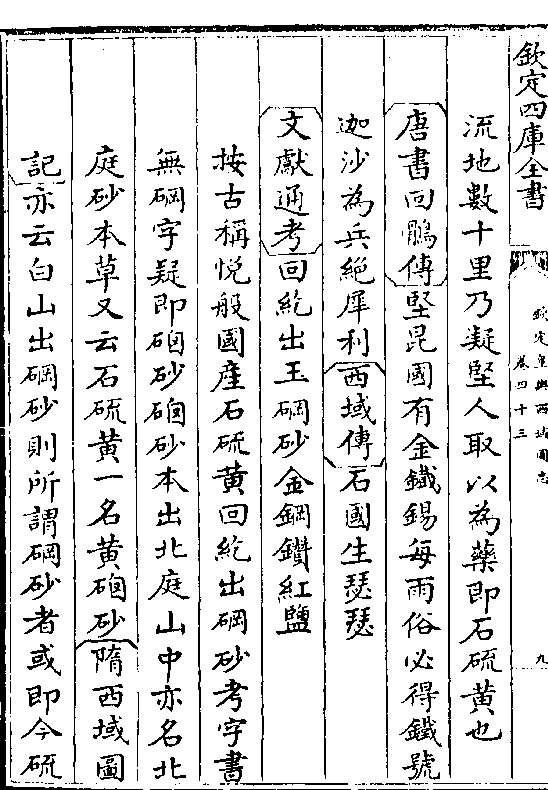 欽定四庫全書
欽定皇輿西域圖志
卷四十三
九
流地數十里乃凝堅人取以為藥即石硫黃也
唐書回鶻傳堅昆國有金鐵錫每雨俗必得鐵號
迦沙為兵絕犀利西域傳石國生瑟瑟
文獻通考回紇出玉碙砂金鋼鑽紅鹽
按古稱悅般國產石硫黃回紇出碙砂考字書
無碙字疑即硇砂硇砂本出北庭山中亦名北
庭砂本草又云石硫黃一名黃硇砂隋西域圖
記亦云白山出碙砂則所謂碙砂者或即今硫